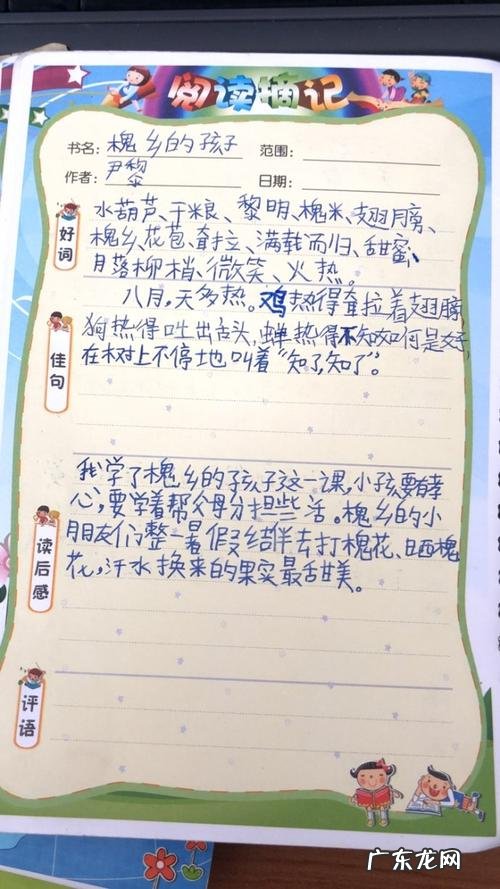 阅读摘记
书名：槐乡的孩子 范围：
作者：尹黎 日期：
好词
水葫芦、干粮、黎明、槐米、翅膀、
槐乡、花苞、耷拉、满载而归、甜蜜、
月落柳梢、微笑、火热。
佳句
八月，天多热。鸡热得耷拉着翅膀，
狗热得吐出舌头，蝉热得不知如何是好，
在树上不停地叫着“知了，知了”。
读后感
我学了槐乡的孩子这一课，小孩要有孝
心，要学着帮父母分担些活。槐乡的小
朋友们整一暑假结群去打槐花、晒槐
花，汗水换来的果实最甜美。
评语
广东龙网